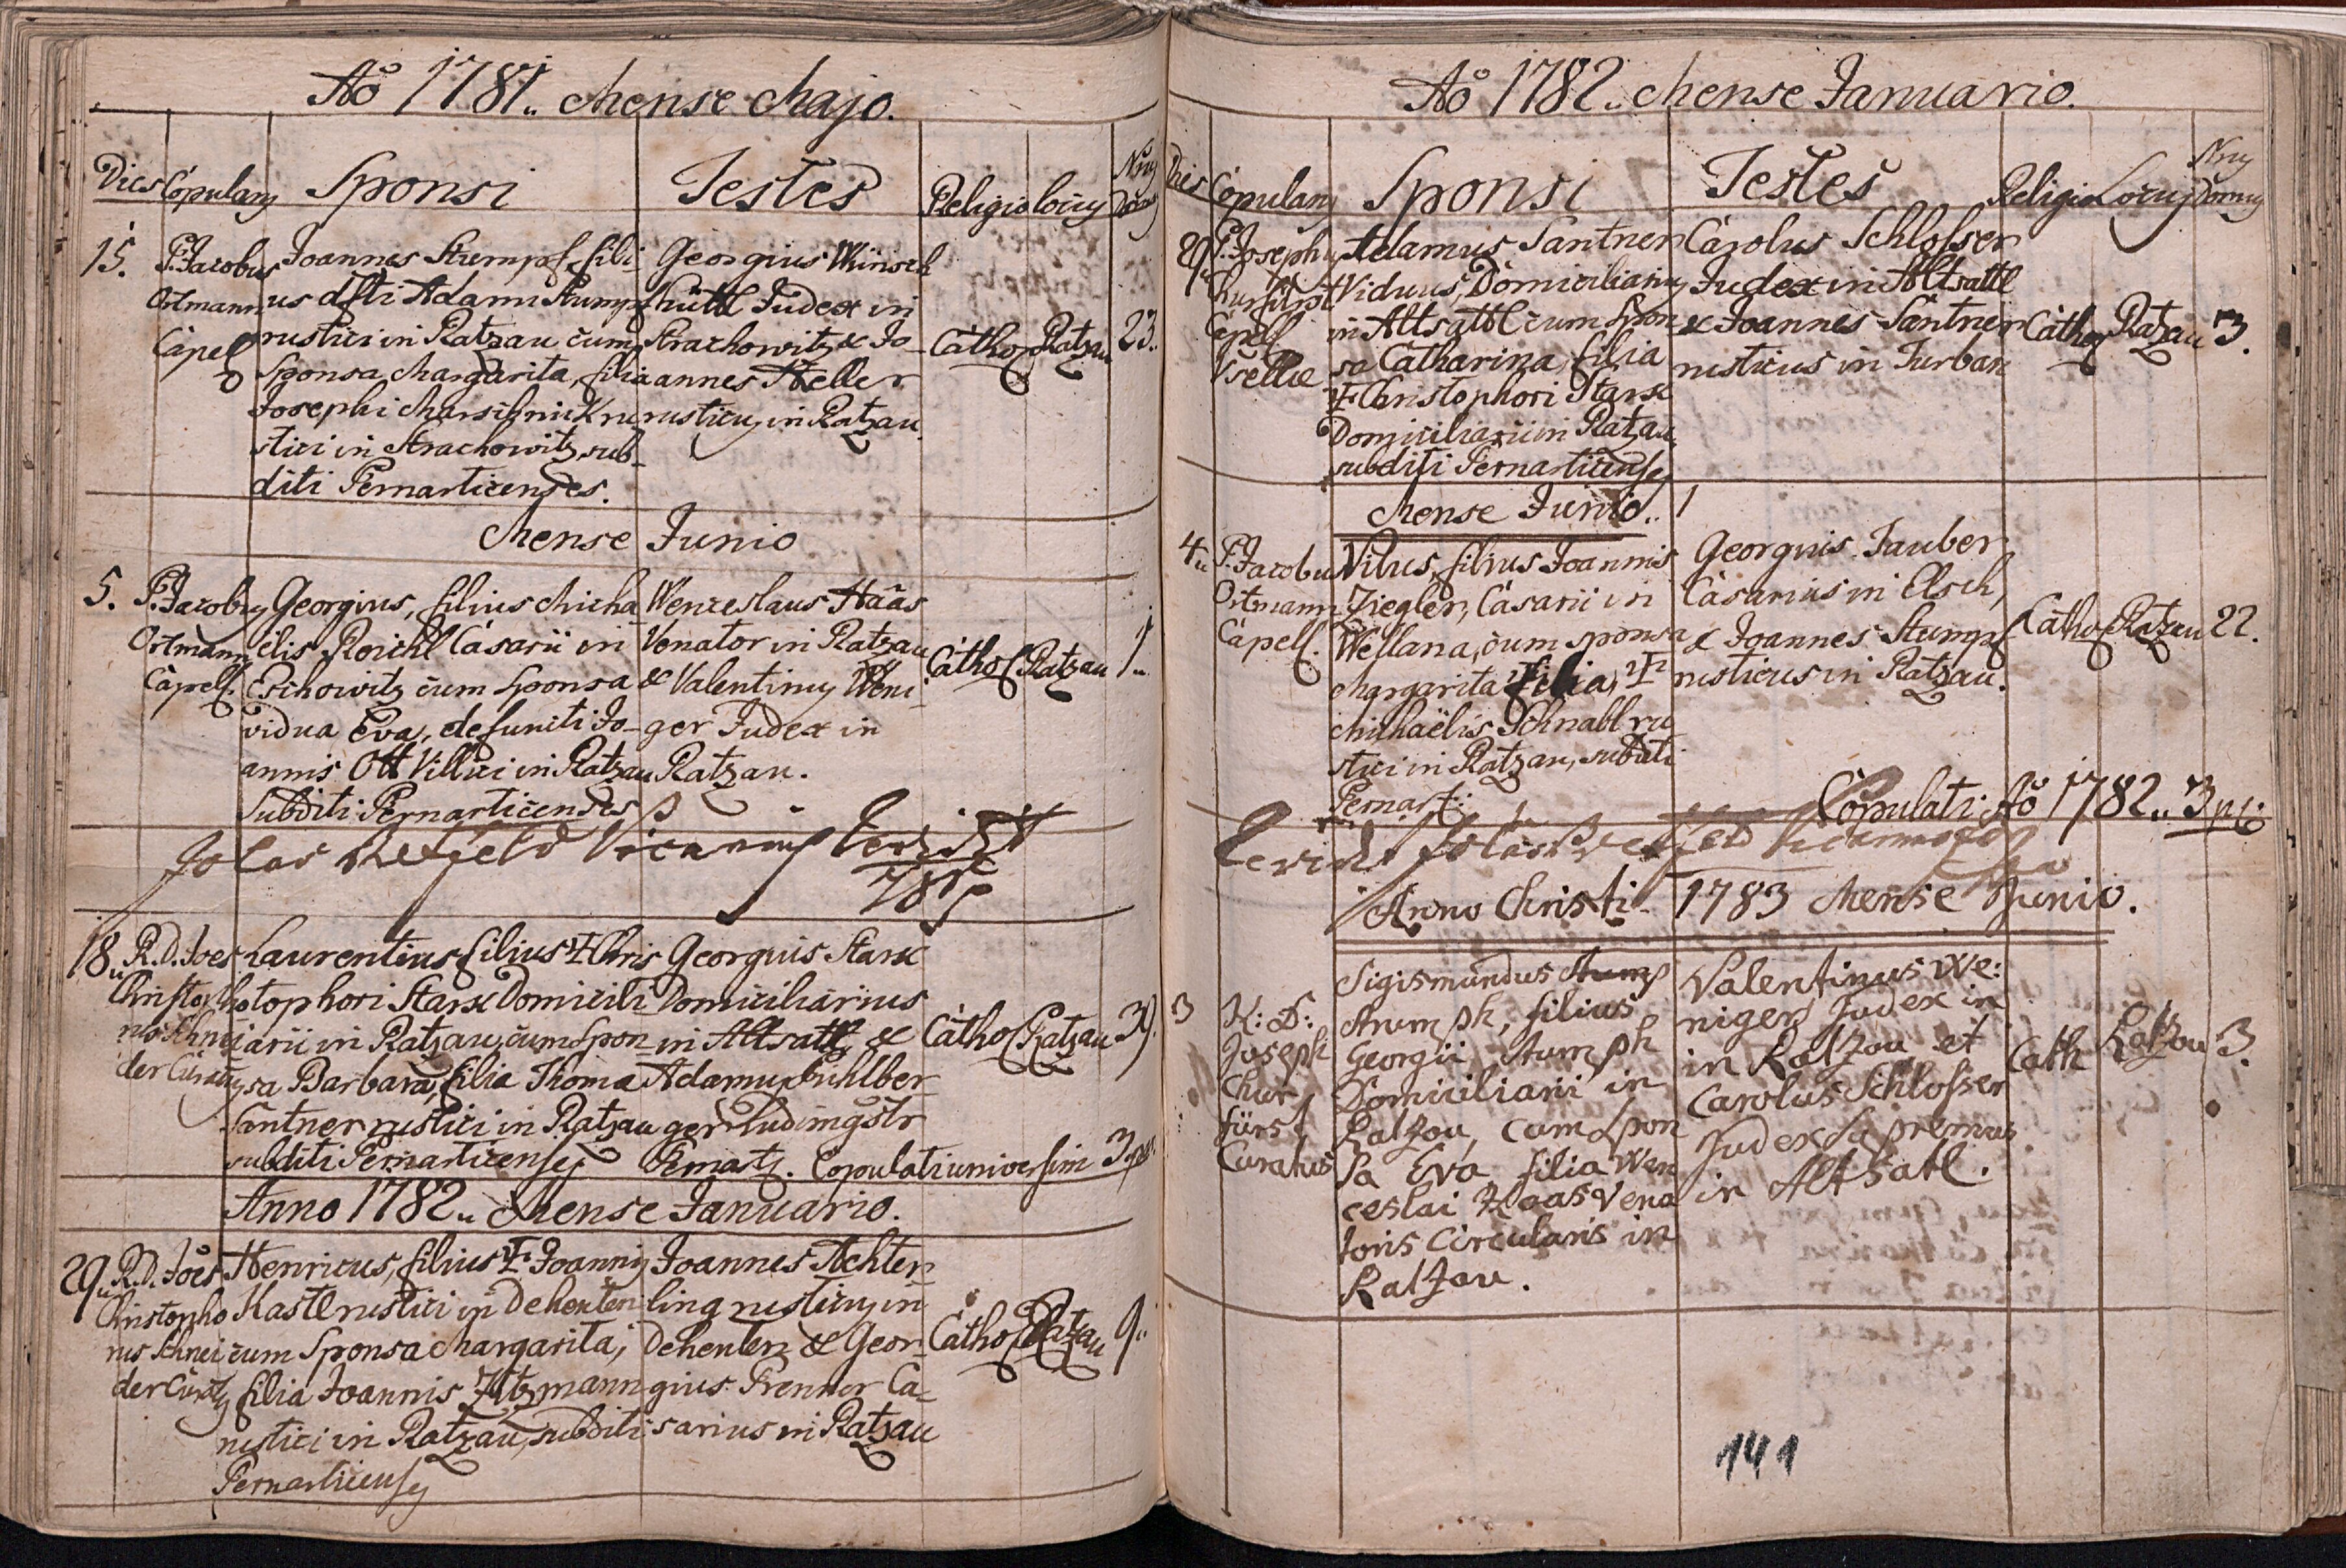 Aö 1781.. Mense Majo.
Dies Copulans Sponsi Testes Religio locus Nrus Domus
15. P. Jacobus Ortmann Capel
Joannes Stumpf, fili-
us dfti Adami Stumpf
rustici in Ratzau cum
Sponsa Margarita, filia
Josephi Marschnick ru
stici in Strachowitz, sub-
diti Pernarticenses.
Georgius Wünsch
hüttl Judex in
Strachowitz & Jo-
annes Heller
rusticus in Ratzau
Cathol Ratzau 23..
Mense Junio
5. P. Jacobus
Ortmann
Capell.
Georgius, filius Micha
ëlis Reichl Casarii in
Eschowitz cum Sponsa
vidua Eva, defuncti Jo-
annis Ott Villici in Ratzau
Subditi Pernarticenses
Wenceslaus Haas
Venator in Ratzau
& Valentinus Weni
ger Judex in
Ratzau.
Cathol Ratzau 1..
Vicarius
781
18.. R.D. Joes
Christopho
rus Schnei
der Curatus
Laurentius filius Chris
tophori Starx Domicili
arii in Ratzau, cum Spon
sa Barbara, filia Thoma
Santner rustici in Ratzau
subditi Pernarticenses
Georgius Starx
Domiciliarius
in Altsattl &
Adamus Fuhlber
ger Ludimgstr
Pernatz. Copulati universim 3
Cathol Ratzau 39.
Anno 1782.. Mense Januario.
29.. R.D. Joës
Christopho
rus Schnei
der Curats
Henricus, filius Joannis
Kastl rustici in Dehenten
cum Sponsa Margarita,
filia Joannis Zitzmann
rustici in Ratzau, subditi
Pernarticenses
Joannes Achter
ling rusticus in
Dehenten & Geor-
gius Prenner Ca-
sarius in Ratzau
Cathol Ratzau 9..
Aö 1782.. Mense Januario.
Dies Copulans Sponsi Testes Religio Locus Nrus Domus
29.. P. Josephus
Kurfürst
Capell
Adamus Santner
Viduus, Domiciliarius
in Altsattl cum Spon
sa Catharina, filia
Christophori Starx
Domiciliarii in Ratzau
subditi Pernarticenses
Carolus Schlosser
Judex in Altsattl
& Joannes Santner
rusticus in Turban
Cathol Ratzau 3.
Mense Junio..
4.. P. Jacobus
Ortmann
Capell.
Vitus, filius Joannis
Ziegler, Casarii in
Wellana, cum sponsa
Margarita filia,
Michaëlis Schnabl ru
stici in Ratzau, subditi
Pernart:
Georgius Tauber
Casarius in Elsch,
& Joannes Stumpf
rusticus in Ratzau.
Cathol Ratzau 22.
Copulati Aö 1782.. 3
Anno Christi 1783 Mense Junio.
3 R: D:
Joseph
Chur
fürst
Curatus
Sigismundus Stump
Stumph, filius
Georgii Stumph
Domiciliarii in
Ratzau, cum Spon
sa Eva filia Wen
ceslai Haas Vena
toris Circularis in
Ratzau.
Valentinus We:
niger Judex in
in Ratzau et
Carolus Schlosser
Judex Supremus
in Altsatl.
Cath Ratzau 3.
141